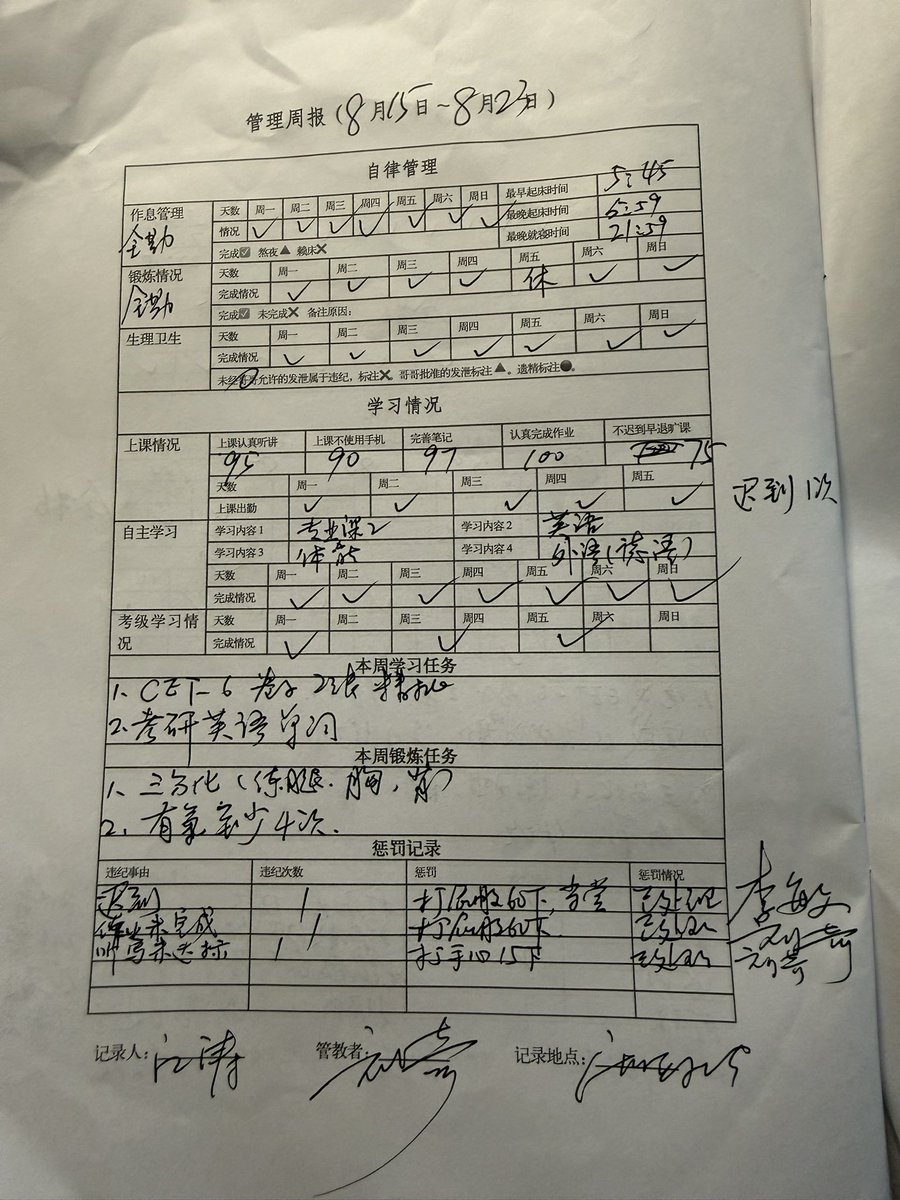 管理周报（8月15日~8月23日）
自律管理
作息管理 天数 周一 周二 周三 周四 周五 周六 周日 最早起床时间 5:45
全勤 情况 ✓ ✓ ✓ ✓ ✓ ✓ ✓ 最晚起床时间 6:59
完成☑ 熬夜▲ 赖床✖ 最晚就寝时间 21:59
锻炼情况 天数 周一 周二 周三 周四 周五 周六 周日
全勤 完成情况 ✓ ✓ ✓ ✓ 休 ✓ ✓
完成☑ 未完成✖ 备注原因：
生理卫生 天数 周一 周二 周三 周四 周五 周六 周日
完成情况 ✓ ✓ ✓ ✓ ✓ ✓ ✓
未经哥哥允许的发泄属于违纪，标注✖。哥哥批准的发泄标注▲。遗精标注●。
学习情况
上课情况 上课认真听讲 上课不使用手机 完善笔记 认真完成作业 不迟到早退旷课
95 90 97 100 75
天数 周一 周二 周三 周四 周五
上课出勤 ✓ ✓ ✓ ✓ ✓ 迟到1次
自主学习 学习内容1 专业课2 学习内容2 英语
学习内容3 体能 学习内容4 外语(德语)
天数 周一 周二 周三 周四 周五 周六 周日
完成情况 ✓ ✓ ✓ ✓ ✓ ✓ ✓
考级学习情况 天数 周一 周二 周三 周四 周五 周六 周日
完成情况 ✓ ✓ ✓
本周学习任务
1、CET-6 卷子2张
2、考研英语单词
本周锻炼任务
1、三分化（练腿、胸、背）
2、有氧至少4次.
惩罚记录
违纪事由 违纪次数 惩罚 惩罚情况
迟到 1 打屁股60下，当堂 已处理 李敏
作业未完成 1 打屁股60下 已处理
听写未达标 1 打手心15下 已处理
记录人： 江涛 管教者： 记录地点：